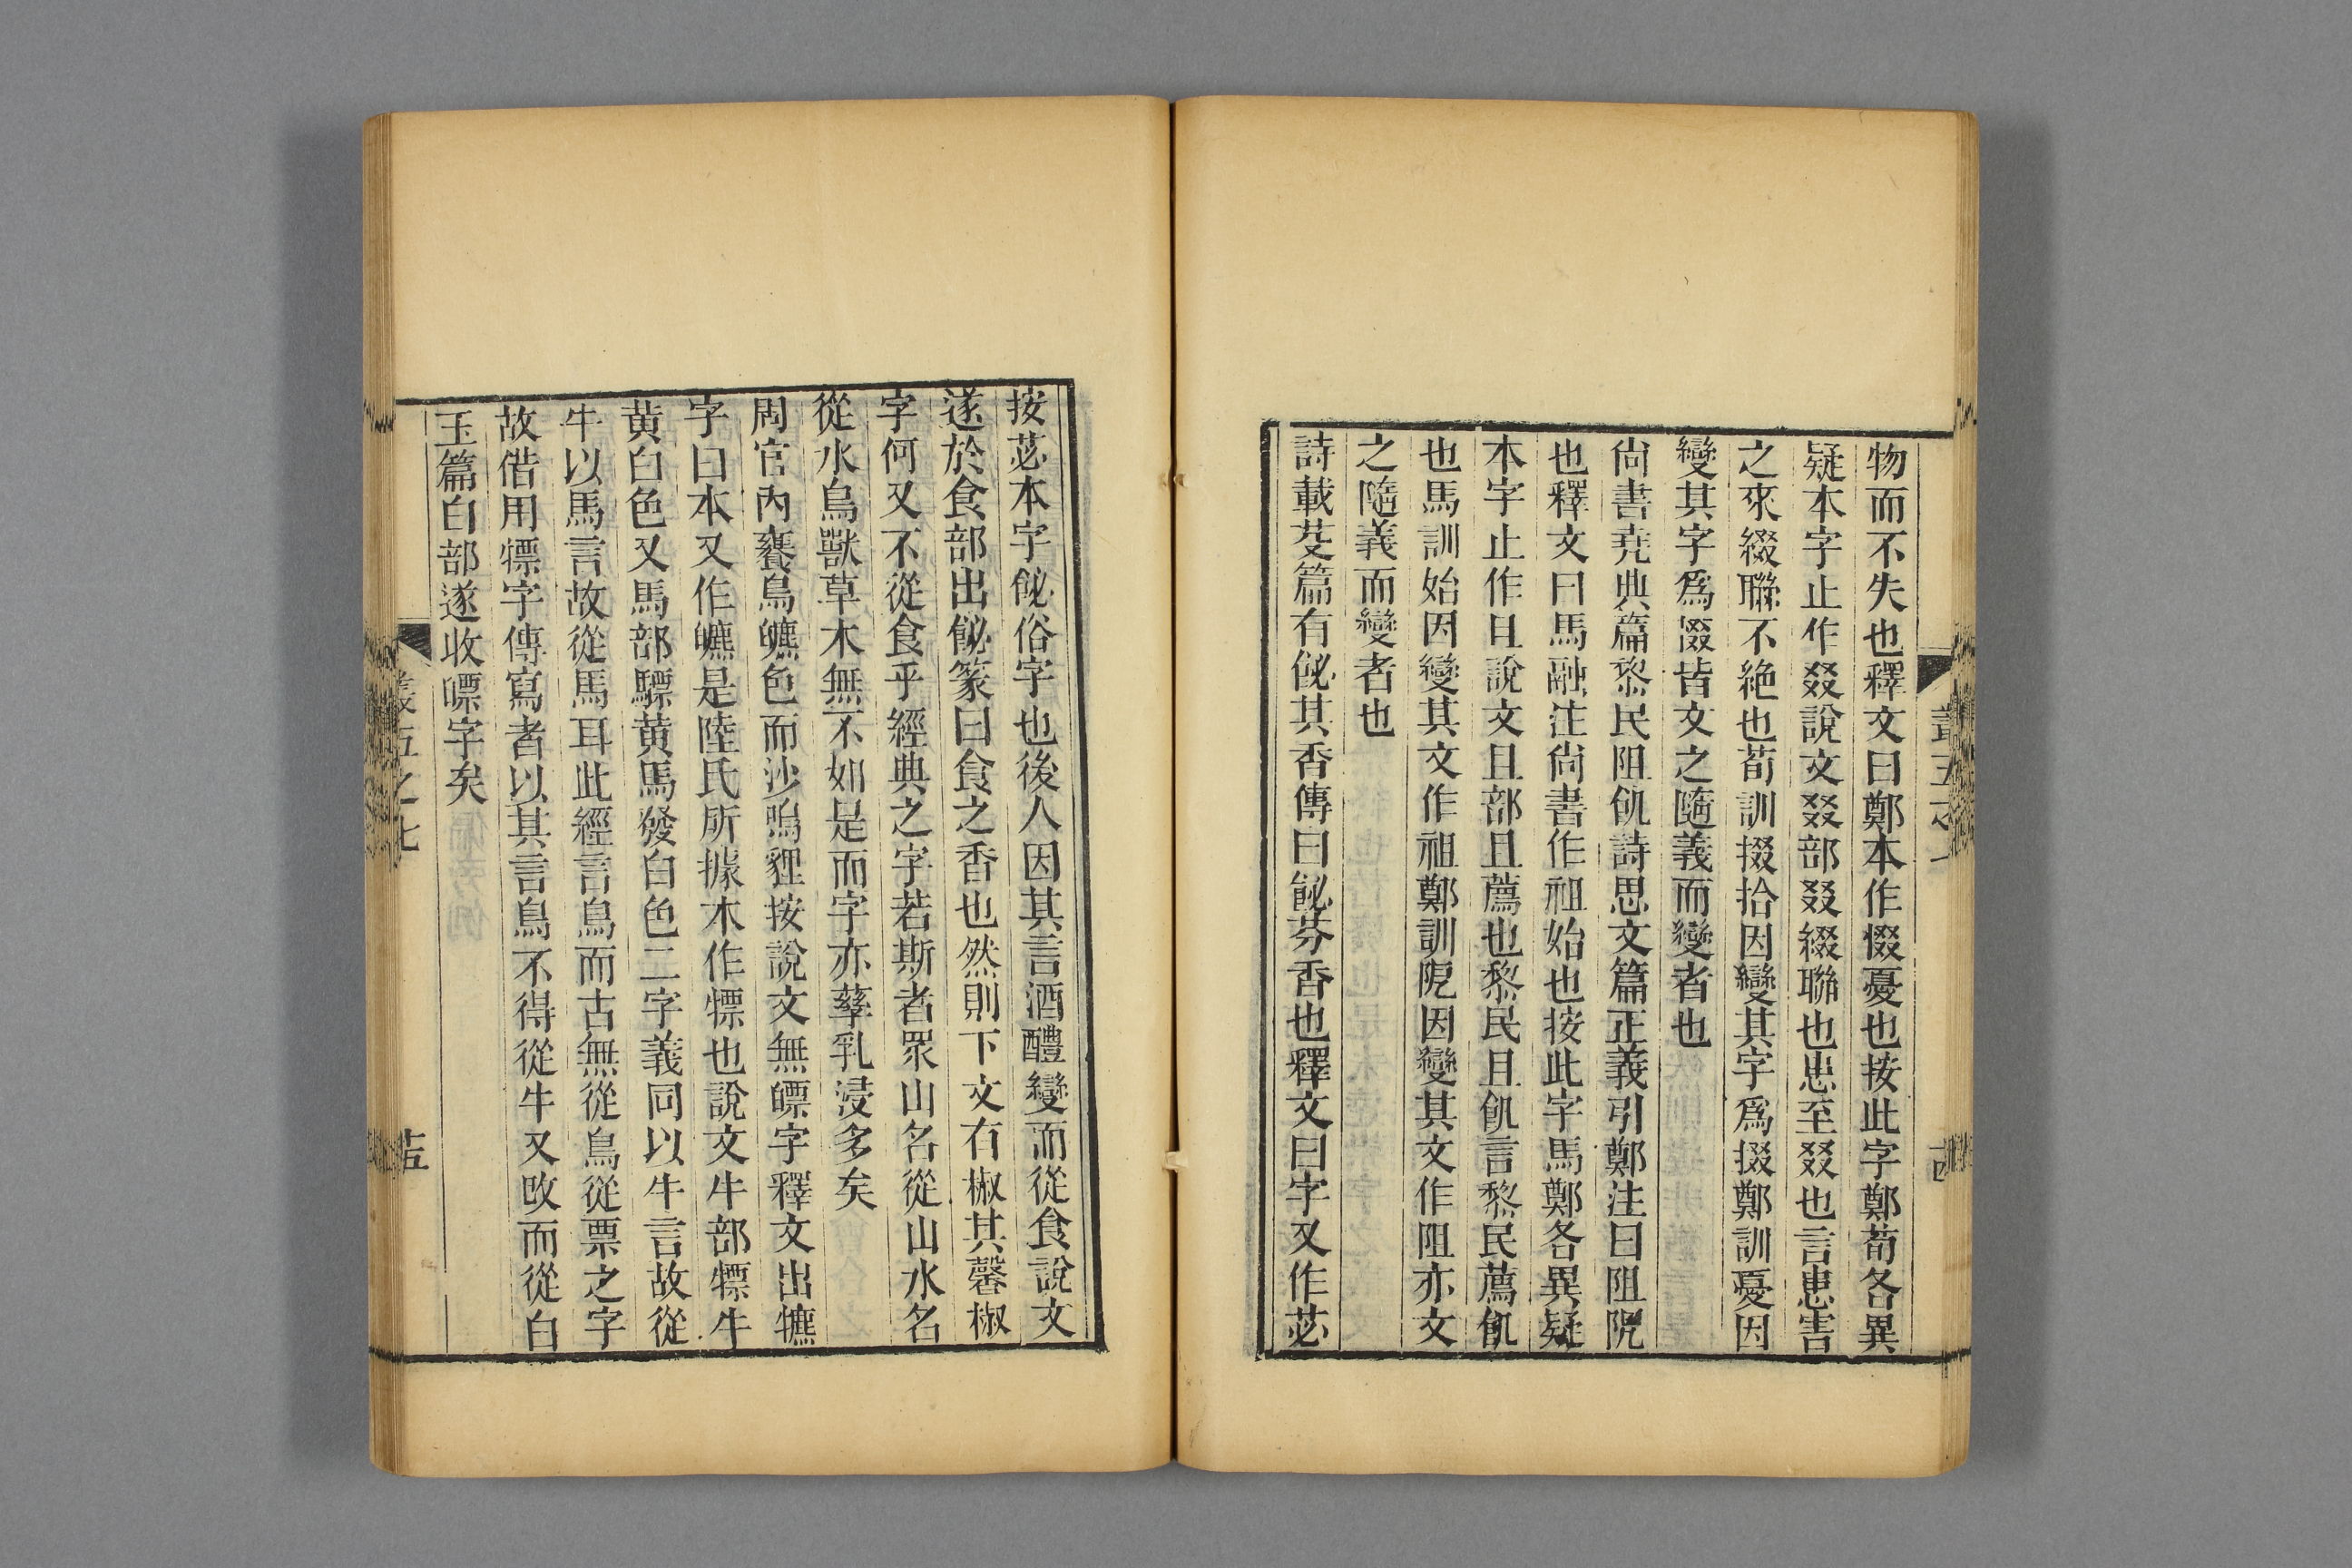 物而不失也釋文曰鄭本作惙憂也按此字鄭荀各異
疑本字止作叕說文叕部叕綴聯也患至叕也言患害
之來綴聯不絶也荀訓掇拾因變其字爲掇鄭訓憂因
變其字爲惙皆文之隨義而變者也
尚書堯典篇黎民阻飢詩思文篇正義引鄭注曰阻阸
也釋文曰馬融注尚書作祖始也按此字馬鄭各異疑
本字止作且說文且部且薦也黎民且飢言黎民薦飢
也馬訓始因變其文作祖鄭訓阸因變其文作阻亦文
之隨義而變者也
詩載芟篇有飶其香傳曰飶芬香也釋文曰字又作苾
按苾本字飶俗字也後人因其言酒醴變而從食說文
遂於食部出飶篆曰食之香也然則下文有椒其馨椒
字何又不從食乎經典之字若斯者眾山名從山水名
從水鳥獸草木無不如是而字亦孳乳浸多矣
周官內饔鳥皫色而沙鳴貍按說文無皫字釋文出犥
字曰本又作皫是陸氏所據本作犥也說文牛部犥牛
黄白色又馬部驃黄馬發白色二字義同以牛言故從
牛以馬言故從馬耳此經言鳥而古無從鳥從票之字
故借用犥字傳寫者以其言鳥不得從牛又改而從白
玉篇白部遂收皫字矣
叢五之七